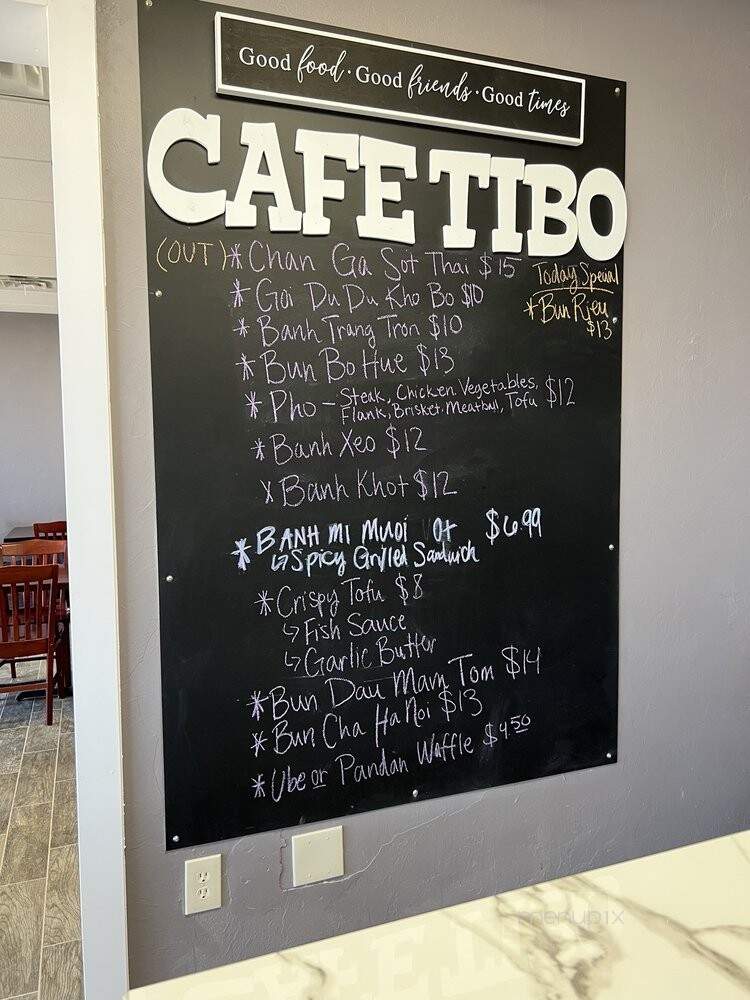 Good food · Good friends · Good times
CAFE TIBO
(OUT) * Chan Ga Sot Thai $15
Today Special
* Goi Du Du Kho Bo $10
* Bun Rieu
$13
* Banh Trang Tron $10
* Bun Bo Hue $13
* Pho - Steak, Chicken, Vegetables,
Flank, Brisket, Meatball, Tofu $12
* Banh Xeo $12
X Banh Khot $12
* BANH MI MUOI OT $6.99
↳ Spicy Grilled Sandwich
* Crispy Tofu $8
↳ Fish Sauce
↳ Garlic Butter
* Bun Dau Mam Tom $14
* Bun Cha Ha Noi $13
* Ube or Pandan Waffle $4.50
menupix